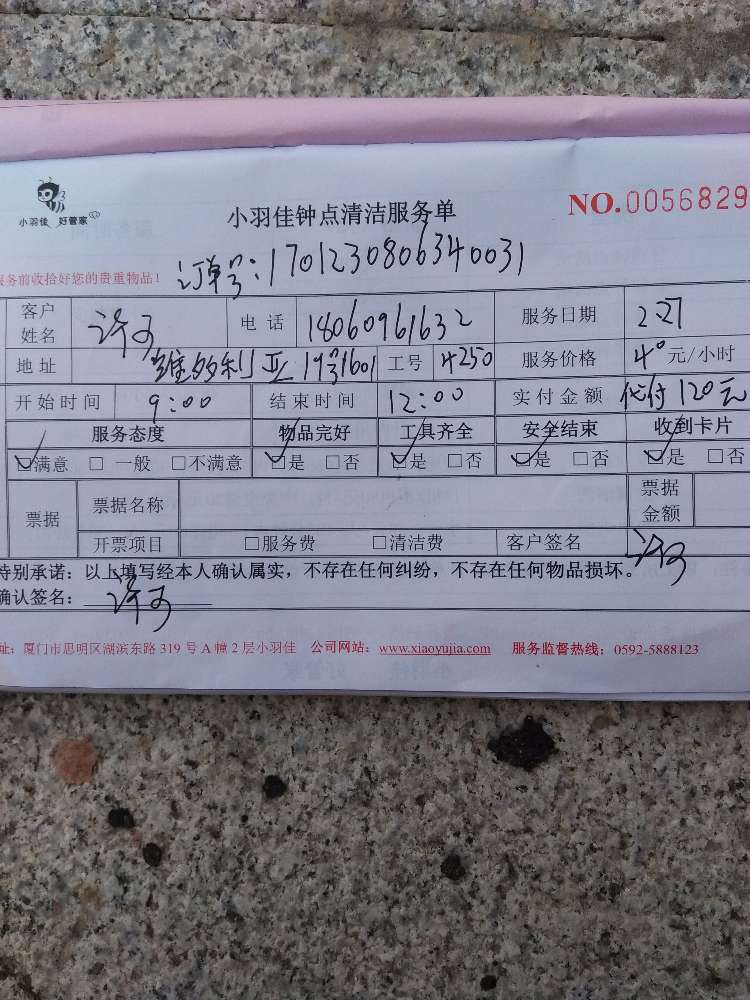 小羽佳 好管家
小羽佳钟点清洁服务单
NO.0056829
服务前收拾好您的贵重物品！
订单号：1701230806340031
客户姓名 许可 电话 18060961632 服务日期 2.27
地址 维多利亚19号1601 工号 4250 服务价格 40元/小时
开始时间 9:00 结束时间 12:00 实付金额 代付120元
服务态度 物品完好 工具齐全 安全结束 收到卡片
☑满意 □一般 □不满意 ☑是 □否 ☑是 □否 ☑是 □否 ☑是 □否
票据 票据名称 票据金额
开票项目 □服务费 □清洁费 客户签名 许可
特别承诺：以上填写经本人确认属实，不存在任何纠纷，不存在任何物品损坏。
确认签名：许可
址：厦门市思明区湖滨东路319号A幢2层小羽佳 公司网站：www.xiaoyujia.com 服务监督热线：0592-5888123